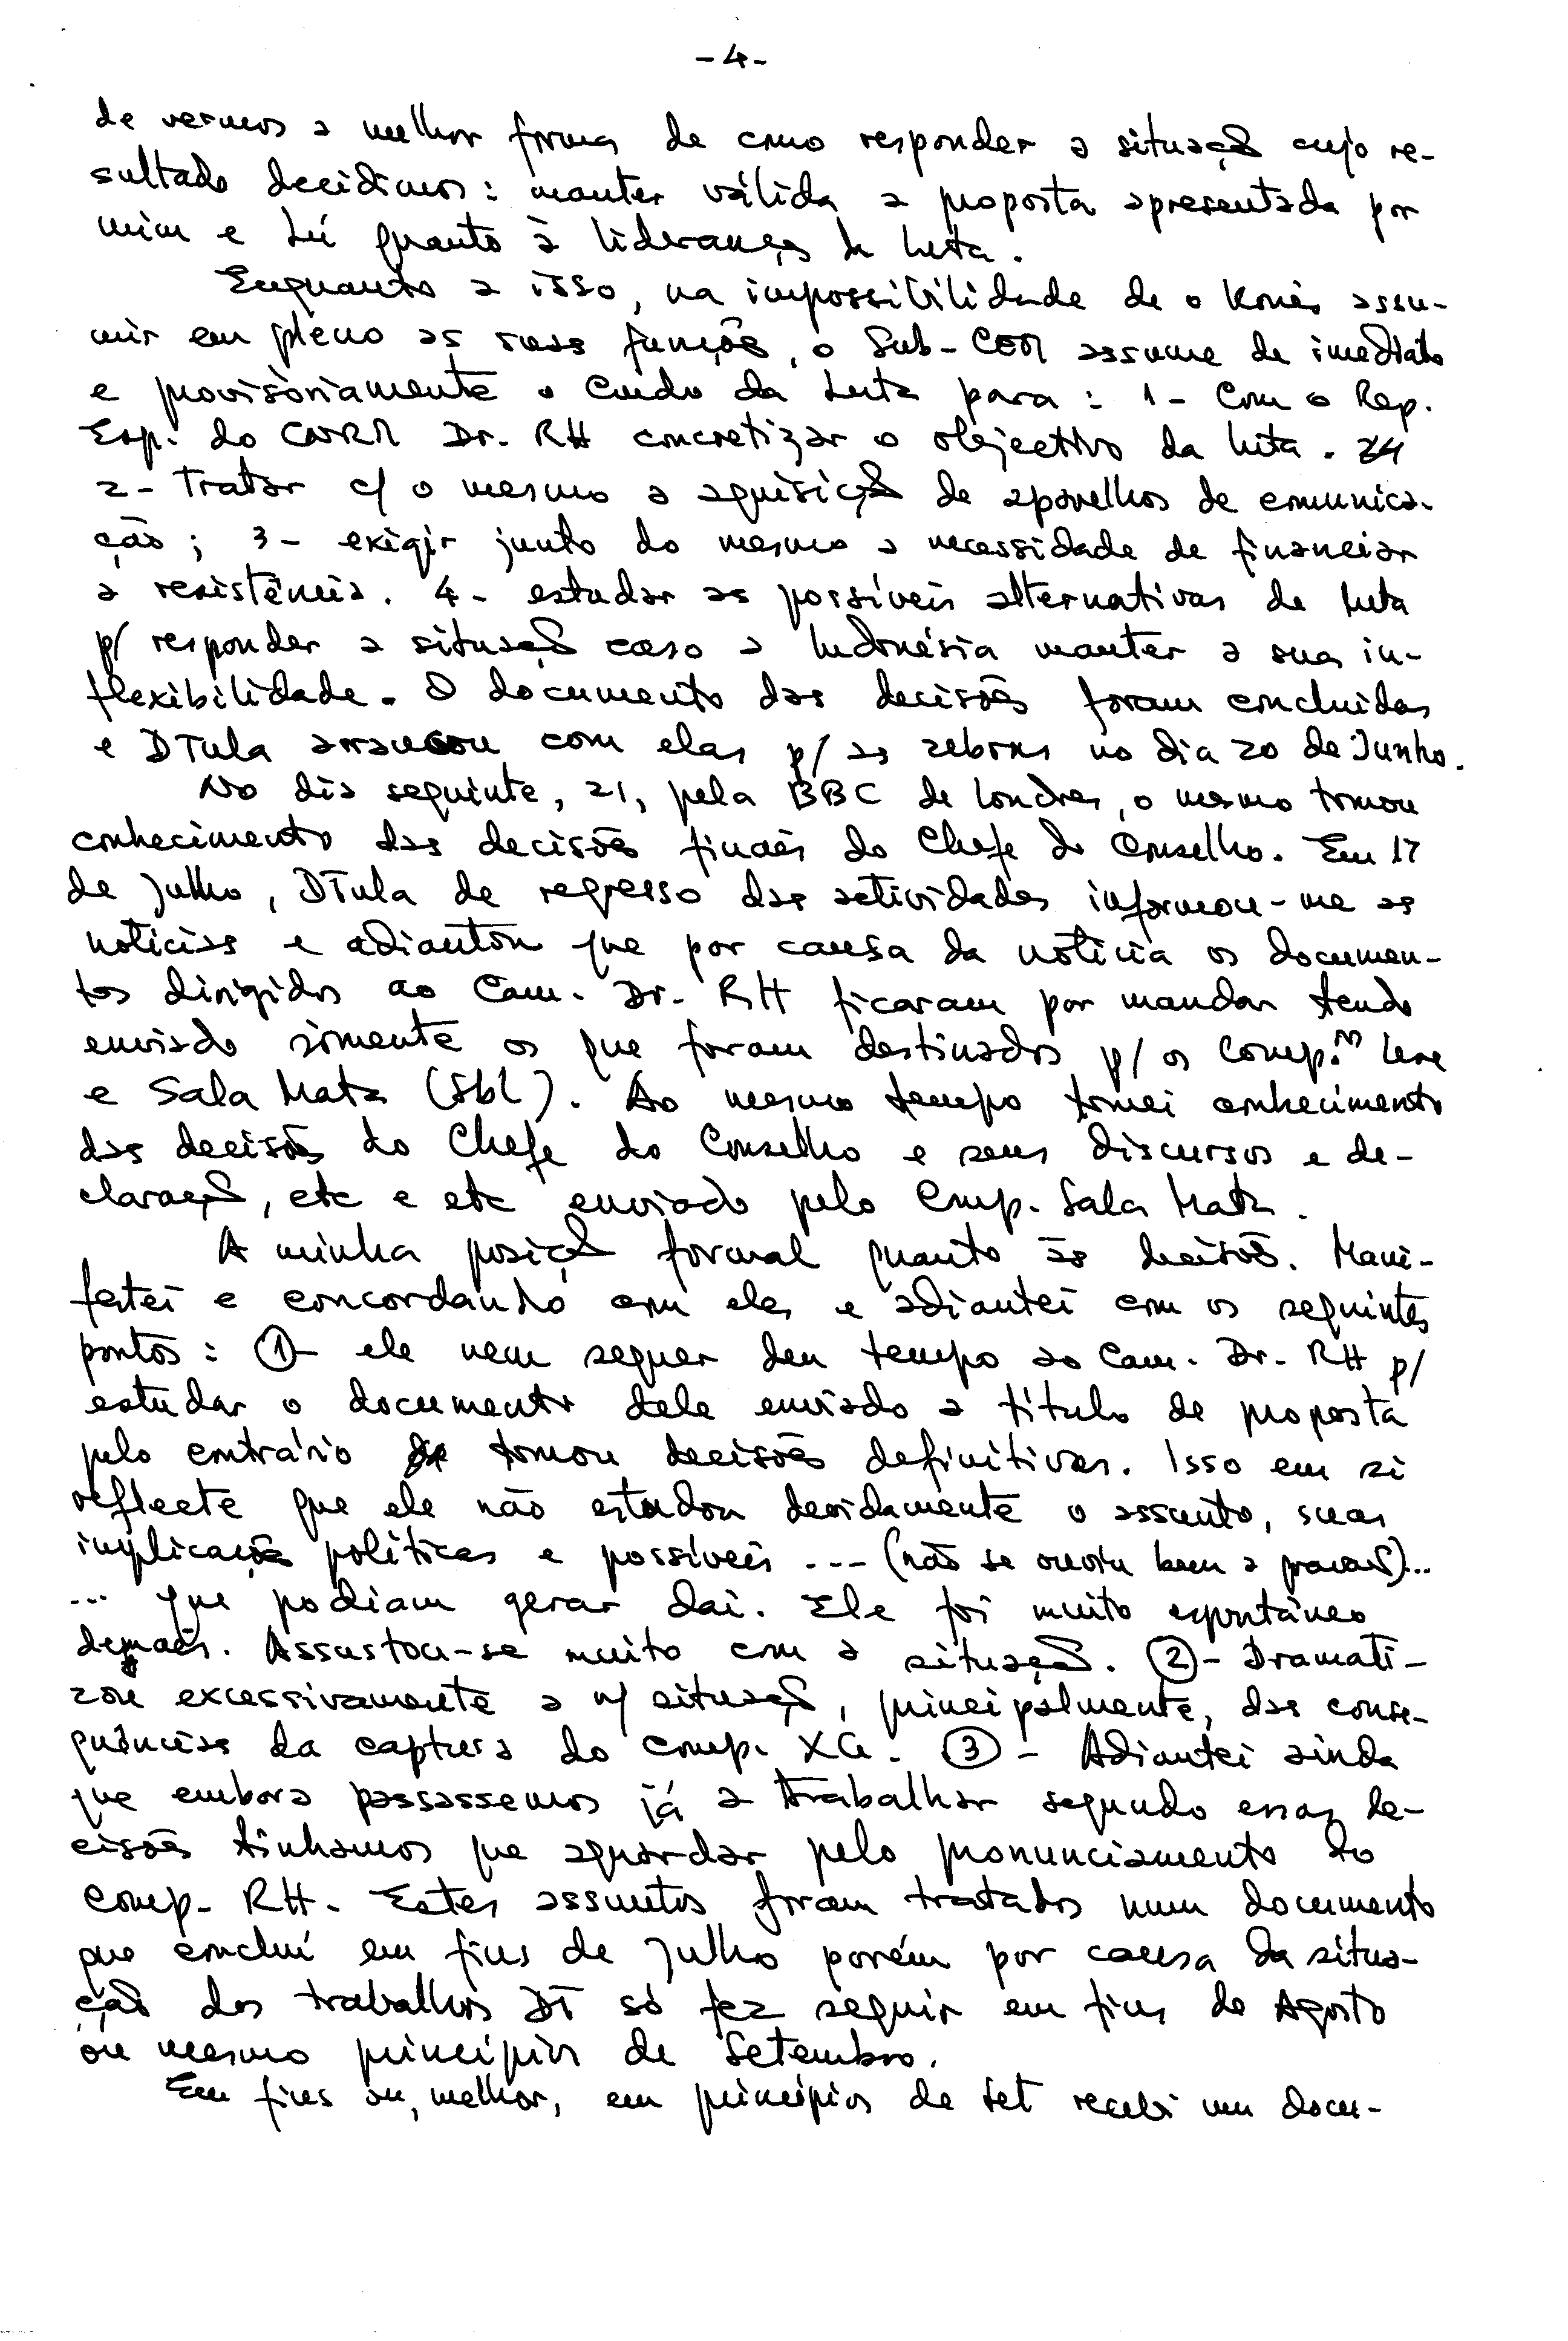 -4-
de vermos a melhor forma de como responder a situação cujo re-
sultado decidimos: manter válida a proposta apresentada por
mim e Lú quanto à liderança da Luta.
Enquanto a isso, na impossibilidade de o Konis assu-
mir em pleno as suas funções, o Sub-CEM assume de imediato
e provisòriamente o Cmdo da Luta para: 1- Com o Rep.
Esp. do CNRM Dr. RH concretizar o objectivo da luta.
2- Tratar c/ o mesmo a aquisição de aparelhos de comunica-
ção; 3- exigir junto do mesmo a necessidade de financiar
a resistência. 4- estudar as possíveis alternativas de luta
p/ responder a situação caso a Indonésia manter a sua in-
flexibilidade. O documento das decisões foram concluídas
e DTula arrancou com elas p/ as zebras no dia 20 de Junho.
No dia seguinte, 21, pela BBC de Londres, o mesmo tomou
conhecimento das decisões finaes do Chefe do Conselho. Em 17
de Julho, DTula de regresso das actividades informou-me as
notícias e adiantou que por causa da notícia os documen-
tos dirigidos ao Cam. Dr. RH ficaram por mandar tendo
enviado sòmente os que foram destinados p/ os Comp.ºs Lere
e Sala Mata (SbL). Ao mesmo tempo tomei conhecimento
das decisões do Chefe do Conselho e seus discursos e de-
claração, etc e etc enviado pelo Cmp. Sala Mata.
A minha posição formal quanto às decisões. Mani-
festei e concordando com eles e adiantei com os seguintes
pontos: 1- ele nem sequer deu tempo ao Cam. Dr. RH p/
estudar o documento dele enviado a título de proposta
pelo contrário tomou decisões definitivas. Isso em si
reflecte que ele não estudou devidamente o assunto, suas
implicações políticas e possíveis --- (não se ouviu bem a gravação)...
... que podiam gerar daí. Ele foi muito espontâneo
demaes. Assustou-se muito com a situação. 2- Dramati-
zou excessivamente a n/ situação, principalmente, das conse-
quências da captura do comp. XG. 3- Adiantei ainda
que embora passassemos já a trabalhar segundo essas de-
cisões tinhamos que aguardar pelo pronunciamento do
comp. RH. Estes assuntos foram tratados num documento
que concluí em fins de Julho porém por causa da situa-
ção dos trabalhos DT só fez seguir em fins de Agosto
ou mesmo princípios de Setembro.
Em fins ou, melhor, em princípios de Set recebi um docu-